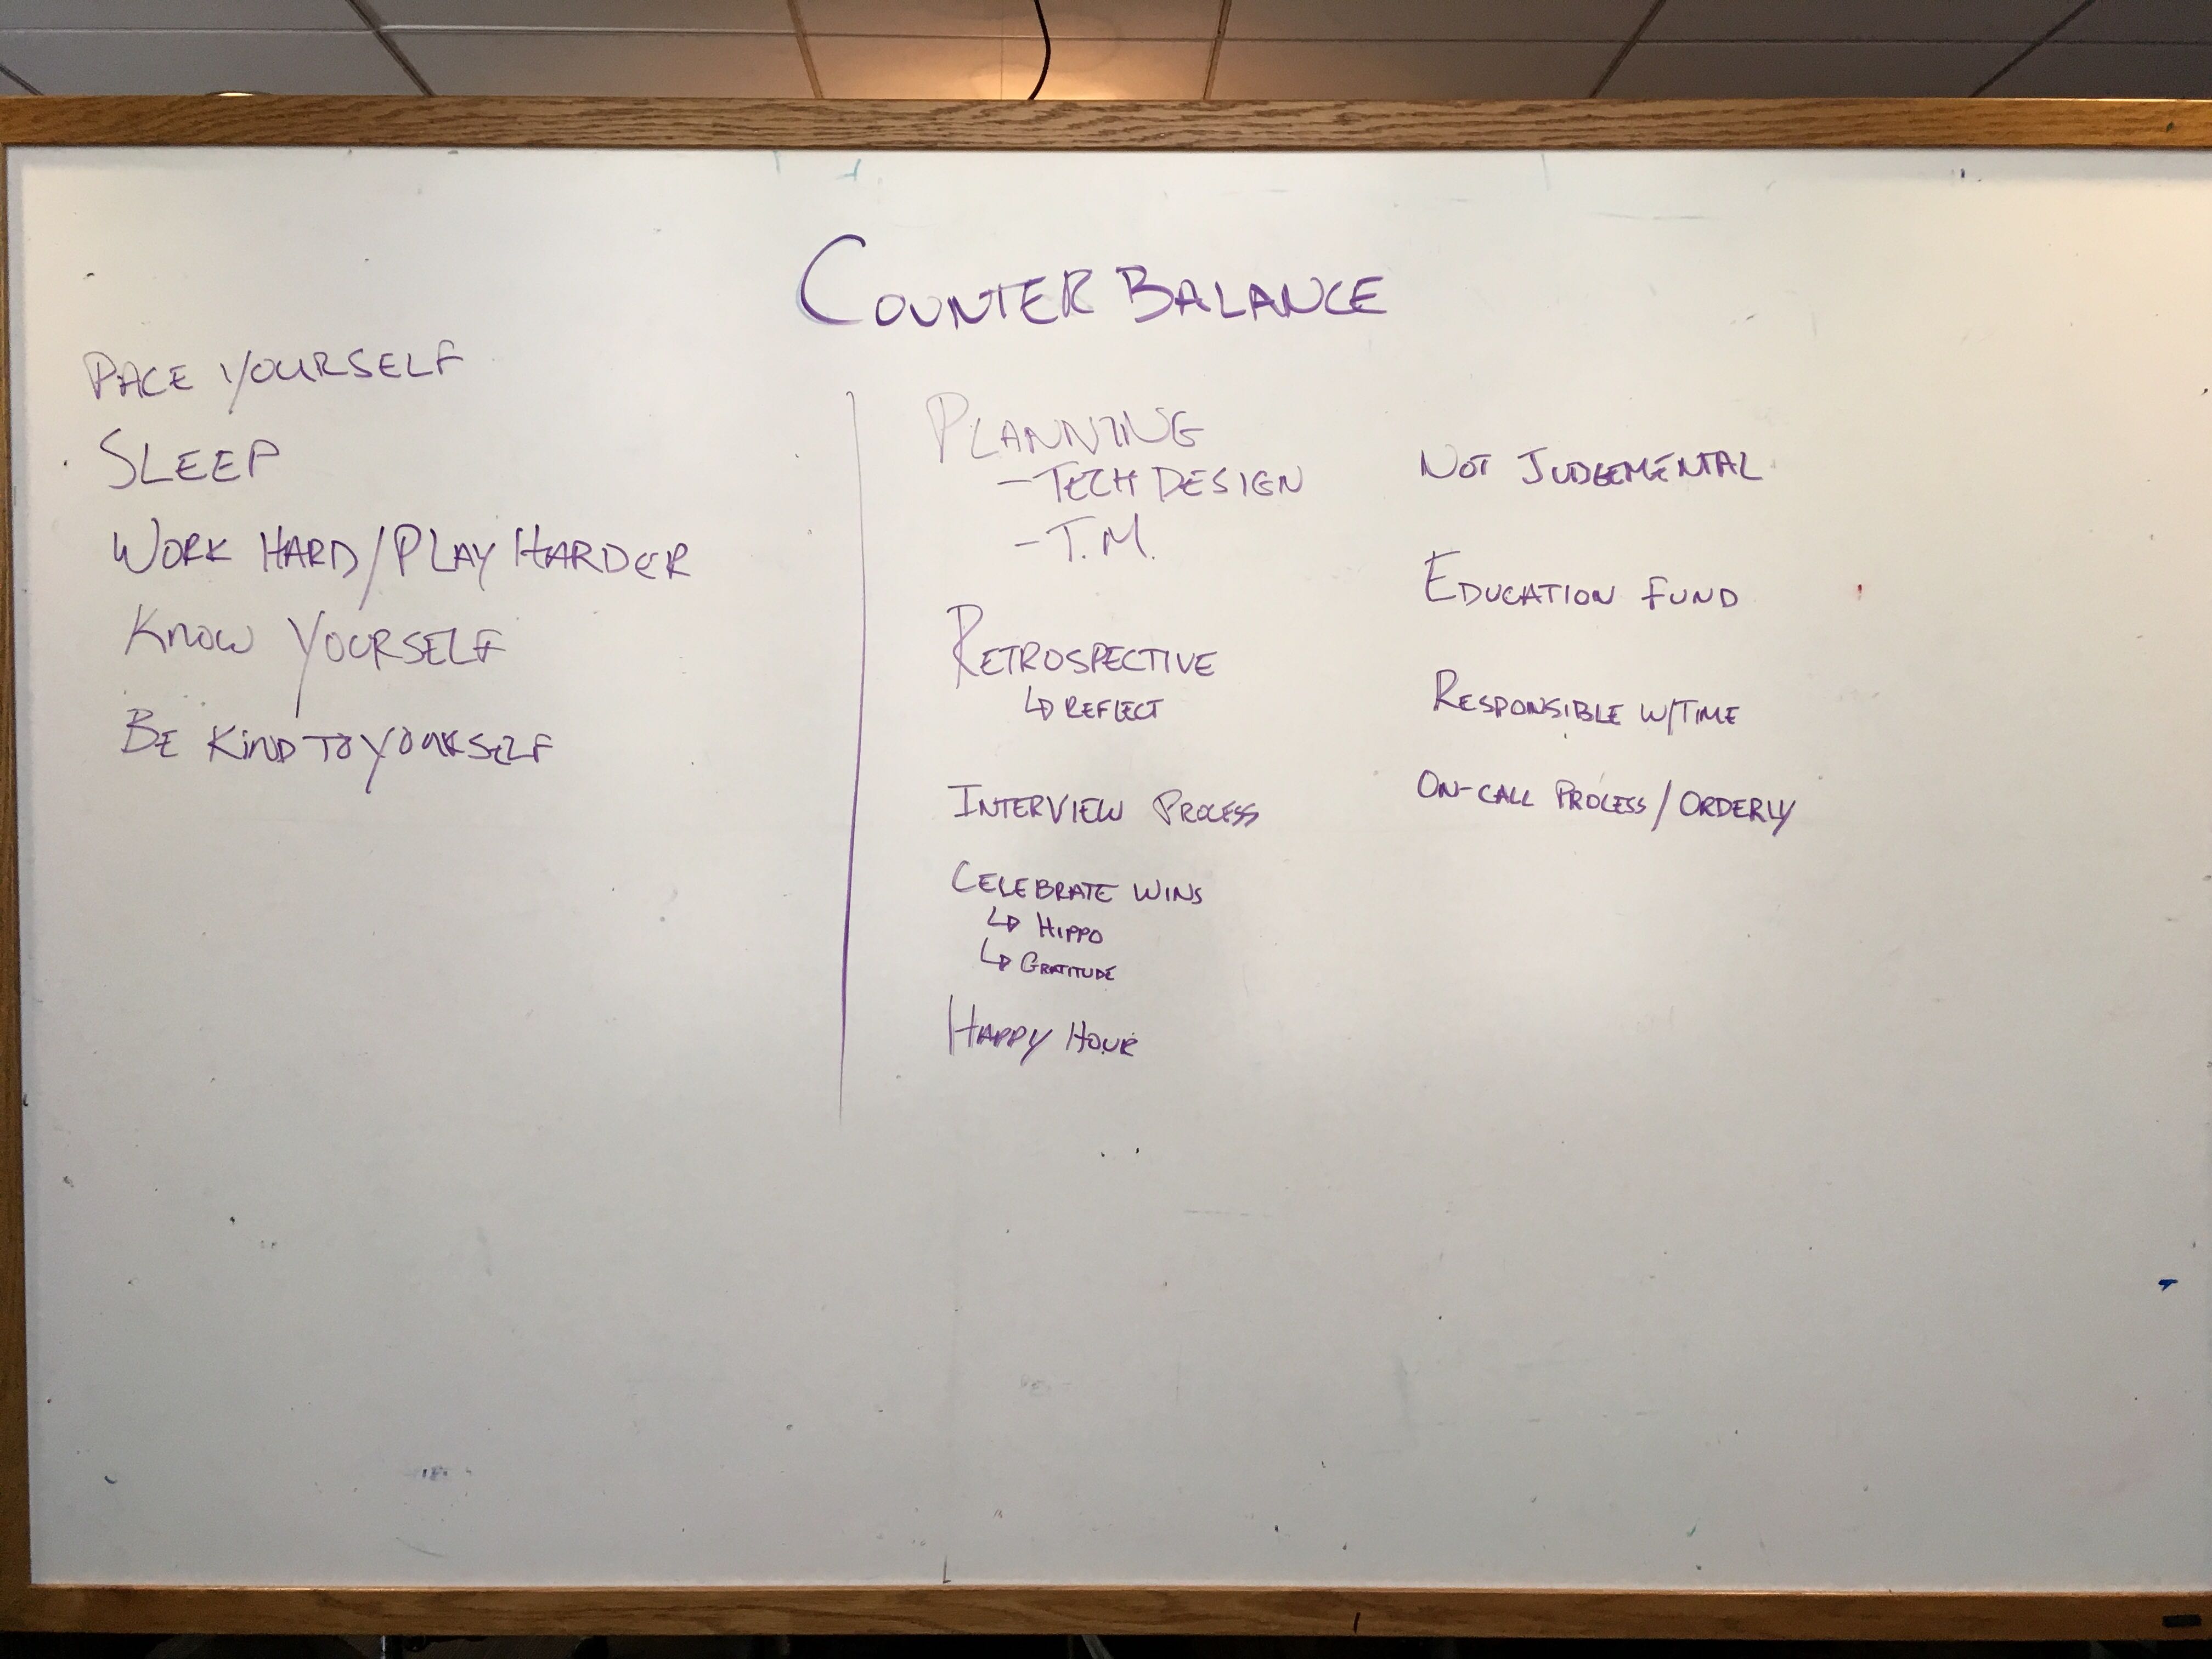 COUNTER BALANCE
PACE YOURSELF
SLEEP
WORK HARD/PLAY HARDER
KNOW YOURSELF
BE KIND TO YOURSELF
PLANNING
- TECH DESIGN
- T.M.
RETROSPECTIVE
↳ REFLECT
INTERVIEW PROCESS
CELEBRATE WINS
↳ HIPPO
↳ GRATITUDE
HAPPY HOUR
NOT JUDGEMENTAL
EDUCATION FUND
RESPONSIBLE W/TIME
ON-CALL PROCESS/ORDERLY